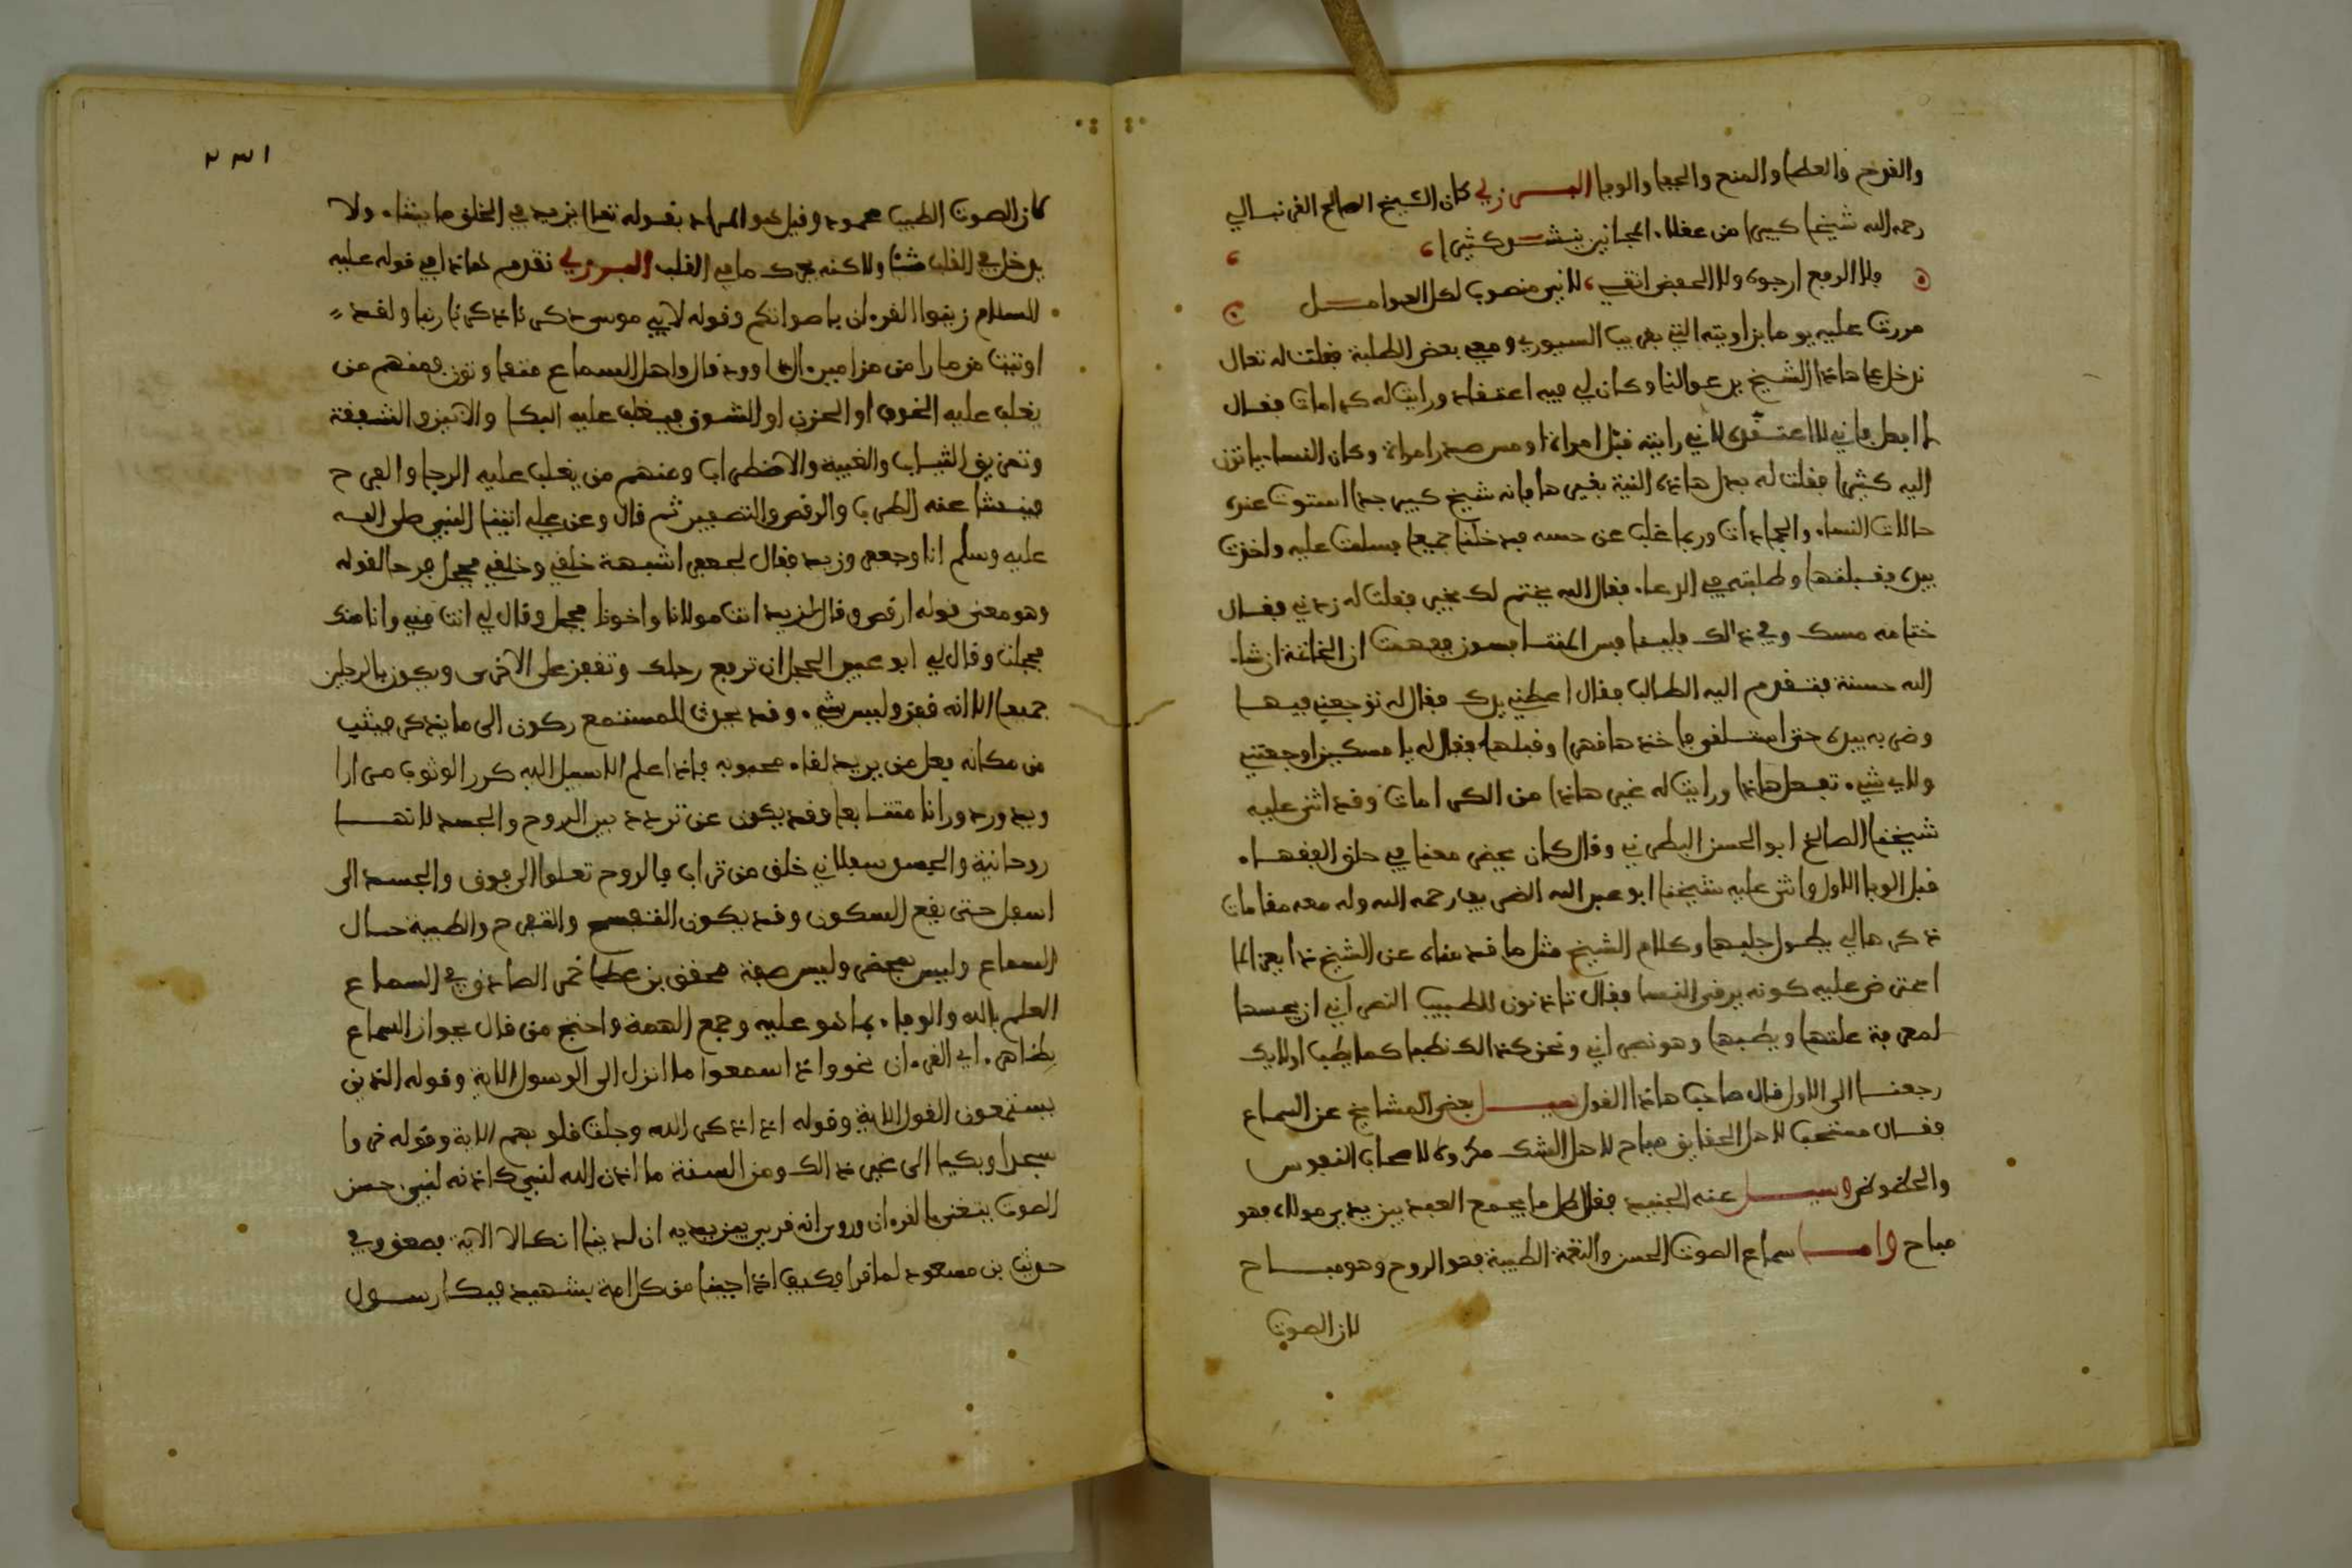 والفرح والعطا والمنح والجفا والوفا البرزلي كان الشيخ الصالح الغرنيالي
رحمه الله شيخا كبيرا من عقلاء المجانين ينشد كثيرا
فلا الرفع ارجوه ولا الخفض اتقي لاني منصوب لكل العوامل
مررت عليه يوما بزاويته التي بقرب السيوري ومعي بعض الطلبة فقلت له تعال
ندخل على هاذا الشيخ يدعو لنا وكان لي فيه اعتقاد ورايت له كرامات فقال
لا افعل فاني لا اعتقده لاني رايته قبل امراة او مس صدر امراة وكان النساء ياتين
اليه كثيرا فقلت له بدل هاذه النية بغيرها فانه شيخ كبير جدا استوت عنده
حالات النساء والجمادات وربما غاب عن حسه فدخلنا جميعا فسلمت عليه واخذت
بيده فقبلتها وطلبته في الدعاء فقال الله يختم لك بخير فقلت له زدني فقال
ختامه مسك وفي ذالك فليتنافس المتنافسون ففهمت ان الخاتمة ان شاء
الله حسنة فتقدم اليه الطالب فقال اعطني يدك فقال له توجعني فيها
وضربه بيده حتى استلقى فاخذها قهرا وقبلها فقال له يا مسكين اوجعتني
ولاي شيء تفعل هاذا ورايت له غير هاذا من الكرامات وقد اثنى عليه
شيخنا الصالح ابو الحسن البطرني وقال كان يحضر معنا في حلق الفقهاء
قبل الوبا الاول واثنى عليه شيخنا ابو عبد الله الضرير رحمه الله وله معه مقامات
ذكرها لي يطول جلبها وكلام الشيخ مثل ما قدمناه عن الشيخ لما
اعترض عليه كونه يرقي النسا فقال تاذنون للطبيب النصراني ان يجسها
لمعرفة علتها ويطبها وهو نصراني ونحن كذالك نطبها كما يطب اولايك
رجعنا الى الاول قال صاحب هاذا القول سيل بعض المشايخ عن السماع
فقال مستحب لاهل الحقايق مباح لاهل الشك مكروه لاصحاب النفوس
والحظوظ وسيل عنه الجنيد فقال كل ما يجمع العبد بين يدي مولاه فهو
مباح واما سماع الصوت الحسن والنغمة الطيبة فهو الروح وهو مباح
لان الصوت
٢٣١
كان الصوت الطيب محمود وقيل هو المراد بقوله تعالى يزيد في الخلق ما يشاء ولا
يدخل في القلب شيئا ولاكنه يحرك ما في القلب البرزلي تقدم هاذا في قوله عليه
السلام زينوا القرءان باصواتكم وقوله لابي موسى ذكرنا ربنا ولقد
اوتيت مزمارا من مزامير ال داوود قال واهل السماع متفاوتون فمنهم من
يغلب عليه الخوف او الحزن او الشوق فيغلب عليه البكا والانين والشهقة
وتمزيق الثياب والغيبة والاضطراب ومنهم من يغلب عليه الرجا والفرح
فينشا عنه الطرب والرقص والتصفير ثم قال وعن علي اتينا النبي صلى الله
عليه وسلم انا وجعفر وزيد فقال لجعفر اشبهت خلقي وخلقي فحجل فرحا لقوله
وهو معنى قوله ارقص وقال لزيد انت مولانا واخونا فحجل وقال لي انت مني وانا منك
فحجلت وقال لي ابو عبيد الحجل ان ترفع رجلك وتقفز على الاخرى ويكون بالرجلين
جميعا الا انه قفز وليس بمشي وقد يحدث للمستمع ركون الى ما يذكر فيثب
من مكانه يعل من يريد لقاء محبوبه فاذا علم الا سبيل اليه كرر الوثوب مرارا
ويدور دورانا متتابعا وقد يكون عن تردد بين الروح والجسد لانها
روحانية والجسد سفلاني خلق من تراب فالروح تعلوا الى فوق والجسد الى
اسفل حتى يقع السكون وقد يكون التفسح والتفرح والطيبة حال
السماع وليس بمحض وليس صفة محقق بن عطا غرر الصادق في السماع
العلم بالله والوفاء بما هو عليه وجمع الهمة واحتج من قال بجواز السماع
بظاهر اي القرءان نحو واذا سمعوا ما انزل الى الرسول الاية وقوله الذين
يستمعون القول الاية وقوله اذا ذكر الله وجلت قلوبهم الاية وقوله خروا
سجدا وبكيا الى غير ذالك ومن السنة ما اذن الله لنبي كاذنه لنبي حسن
الصوت يتغنى بالقرءان وروي انه قري بين يديه ان لدينا انكالا الاية فصعق وفي
حديث بن مسعود لما قرا فكيف اذا جينا من كل امة بشهيد فبكا رسول